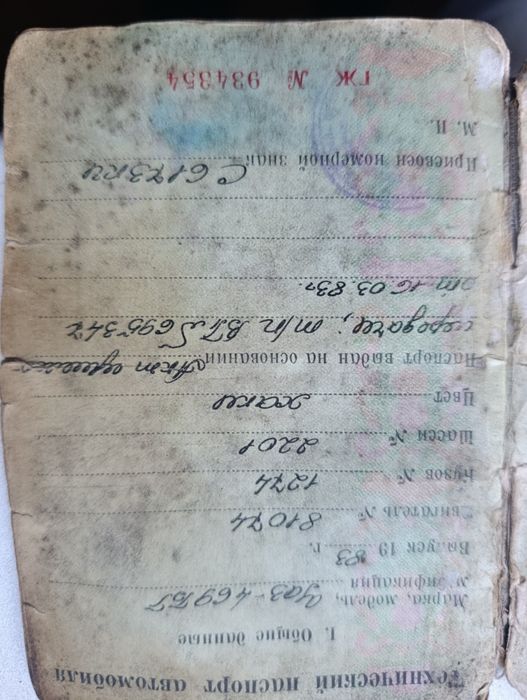 Технический паспорт автомобиля
I. Общие данные
Марка, модель, модификация УАЗ-469БГ
Выпуск 19 83 г.
Двигатель № 81074
Кузов № 1274
Шасси № 2201
Цвет хаки
Паспорт выдан на основании Акт приема
передачи; т/п ВГ № 695347
от 16.03.83г.
Присвоен номерной знак С 6173
М. П.
ГЖ № 934354